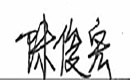 陈俊宏